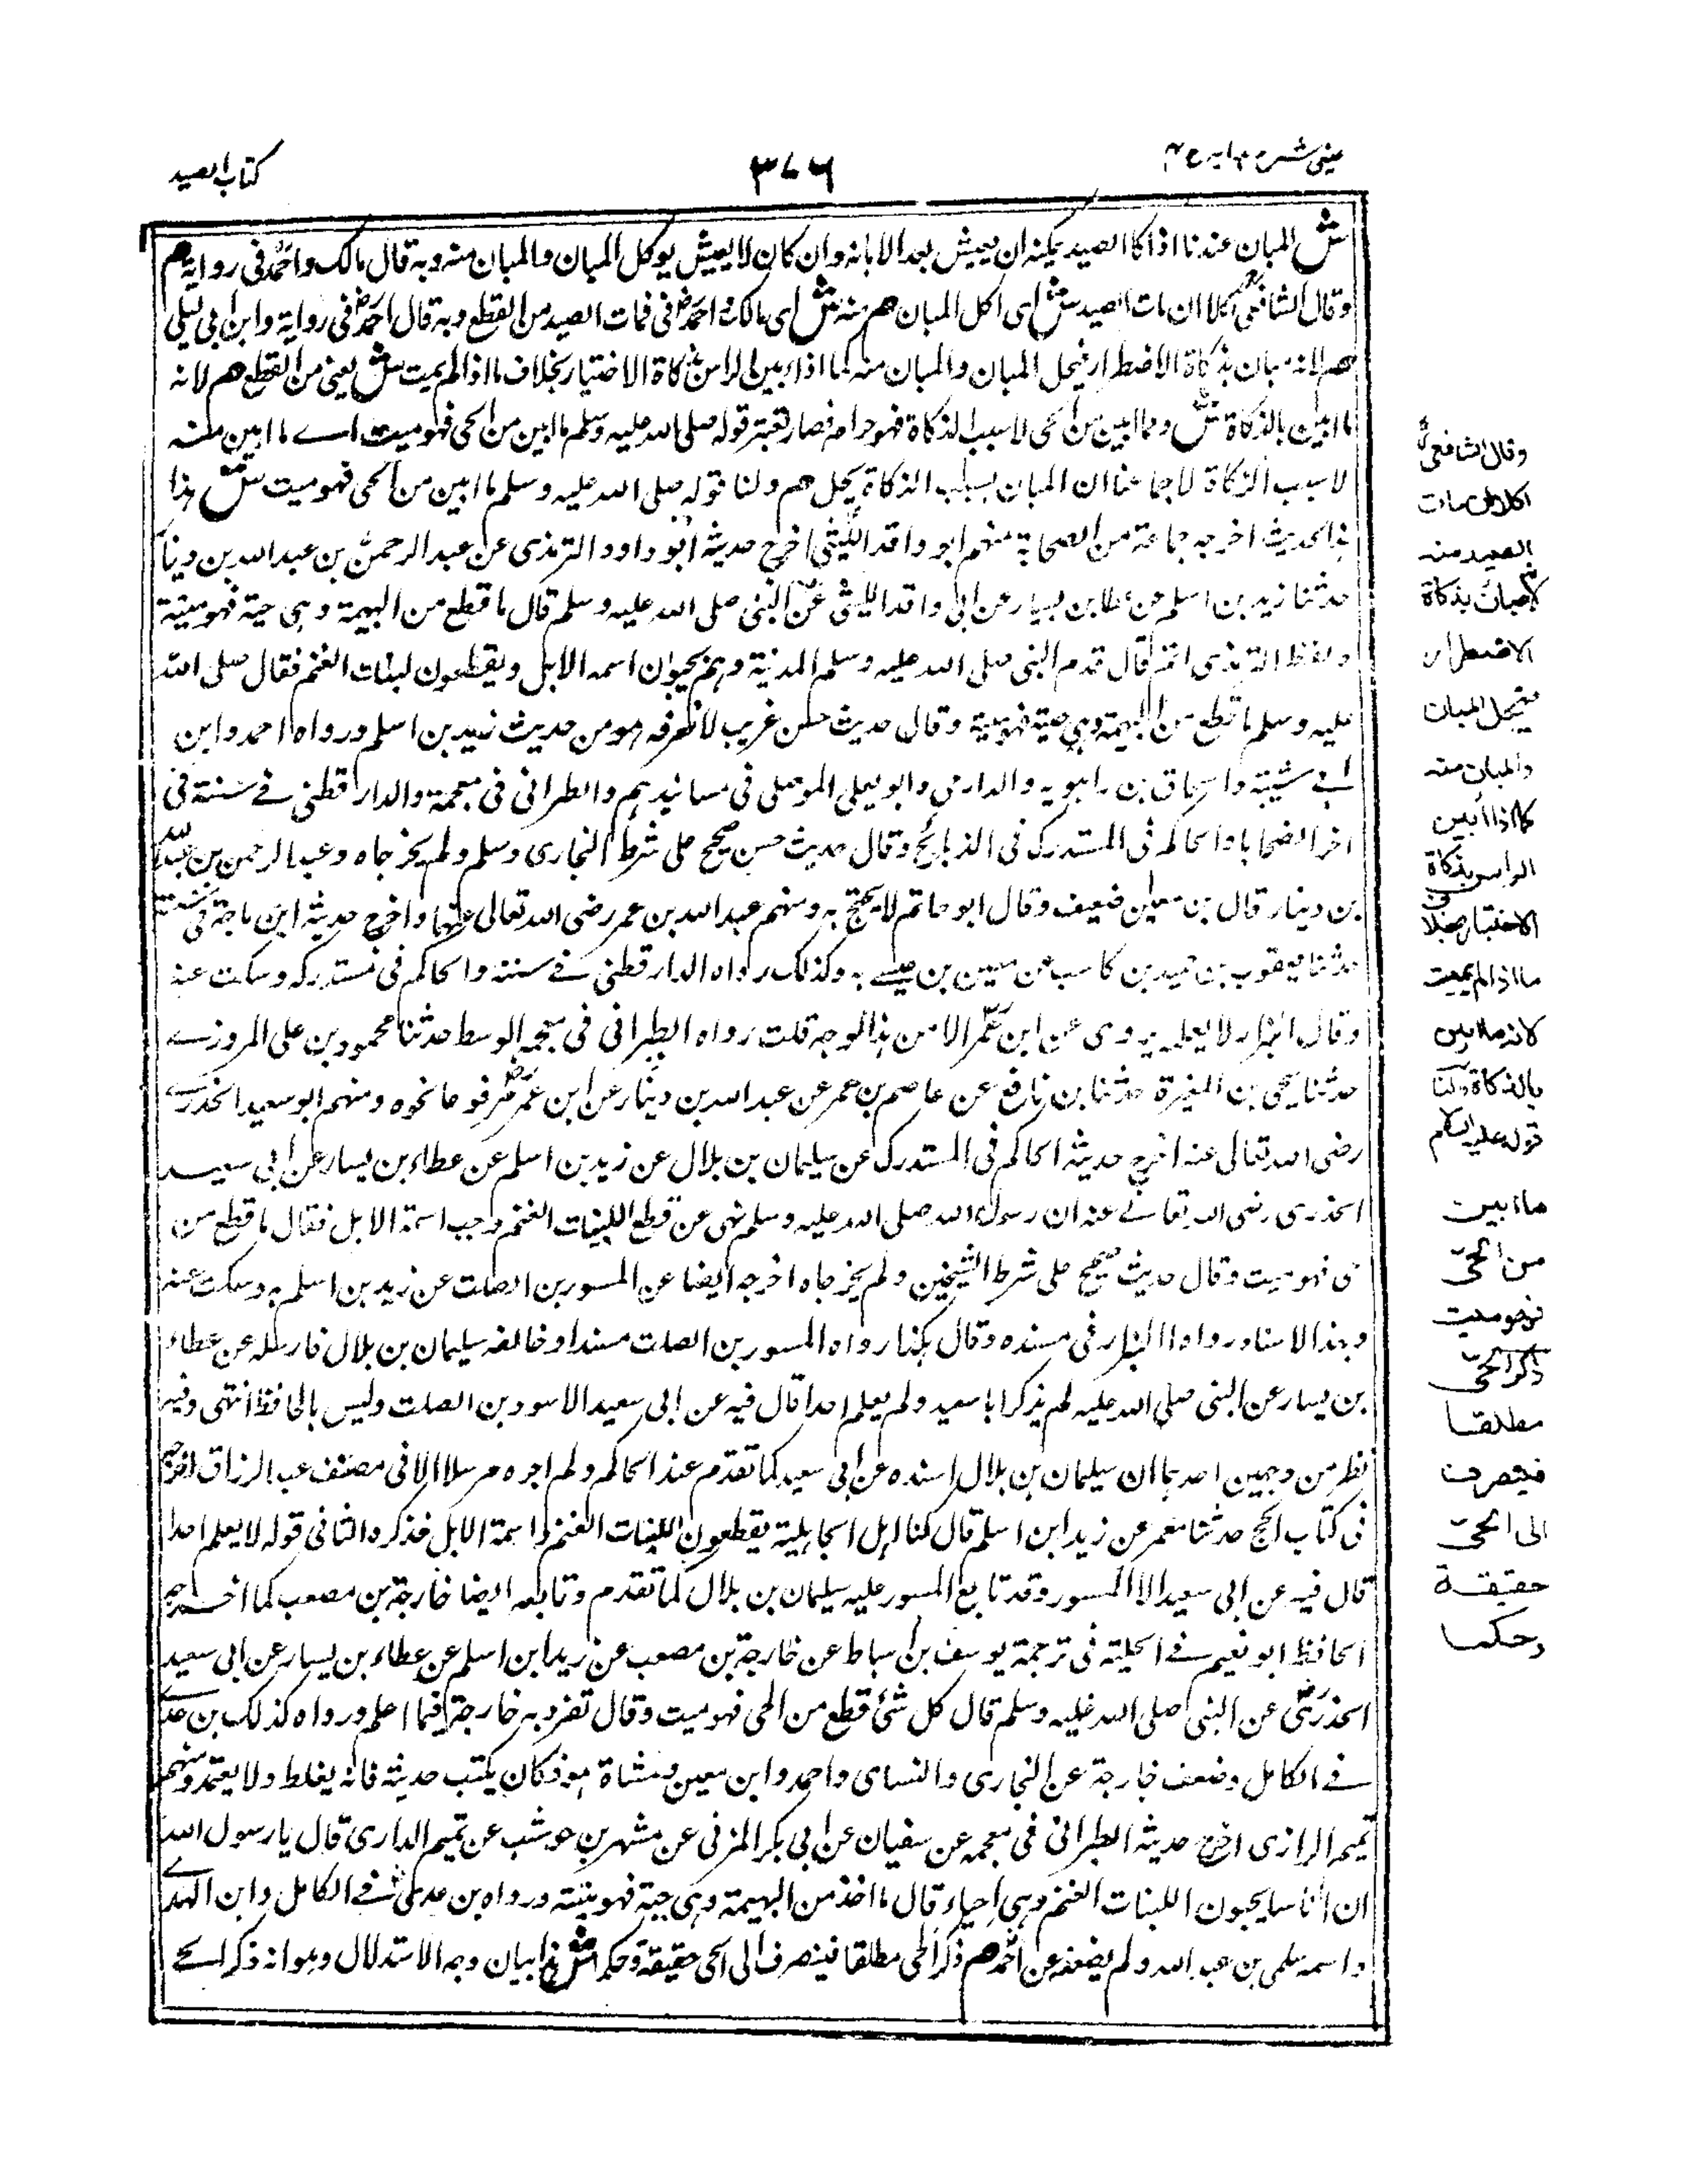 عینی شرح ہدایہ ج ۴
۳۷۶
کتاب الصید
ش المبان عندنا اذا کا الصید یمکنہ ان یعیش بعد الابانہ وان کان لا یعیش یوکل المبان والمبان منہ وبہ قال مالک واحمد فی روایۃ م
وقال الشافعی اکلا ان مات الصید ش ای اکل المبان ھم منہ ش ای مالک واحمد فی فمات الصید من القطع وبہ قال احمد فی روایۃ وابن ابی لیلی
ھم لانہ مبان بذکاۃ الاضطرار فیحل المبان والمبان منہ کما اذا ابین الراس بذکاۃ الاختیار بخلاف ما اذا لم یمت ش یعنی من القطع ھم لانہ
ما ابین بالذکاۃ ش وما ابین من الحی لا بسبب الذکاۃ فہو حرام فصار تعتبر قولہ صلی اللہ علیہ وسلم ما ابین من الحی فہو میت اے ما ابین منہ
لا بسبب الزکاۃ لاجماعنا ان المبان بسبب الذکاۃ یحل ھم ولنا قولہ صلی اللہ علیہ وسلم ما ابین من الحی فہو میت ش ہذا
ہذا الحدیث اخرجہ جماعۃ من الصحابۃ منہم ابو واقد اللیثی اخرج حدیثہ ابو داود الترمذی عن عبد الرحمن بن عبد اللہ بن دینا
حدثنا زید بن اسلم عن عطا بن یسار عن ابی واقد اللیثی عن النبی صلی اللہ علیہ وسلم قال ما قطع من البہیمۃ وہی حیۃ فہو میتۃ
ولفظ الترمذی اتم قال قدم النبی صلی اللہ علیہ وسلم المدینۃ وہم یحبون اسمہ الابل ویقطعون لبنات الغنم فقال صلی اللہ
علیہ وسلم ما قطع من البہیمۃ وہی حیۃ فہو میتۃ وقال حدیث حسن غریب لا نعرفہ ہو من حدیث زید بن اسلم ورواہ احمد وابن
ابے شیبۃ واسحاق بن راہویہ والدارمی وابو یعلی الموصلی فی مسانیدہم والطبرانی فی معجمۃ والدار قطنی فے سننۃ فی
اخر الضحایا والحاکم فی المستدرک فی الذبائح وقال حدیث حسن صحیح علی شرط البخاری وسلم ولم یخرجاہ وعبد الرحمن بن عبد اللہ
بن دینار قال بن معین ضعیف وقال ابو حاتم لا یحتج بہ ومنہم عبد اللہ بن عمر رضی اللہ تعالی عنہا واخرج حدیثہ ابن ماجۃ فی سننہ
حدثنا یعقوب بن حمید بن کاسب عن معین بن عیسے بہ وکذلک رواہ الدار قطنی فے سننہ والحاکم فی مستدرکہ وسکت عنہ
وقال البزار لا یعلمہ یروی عن ابن عمر الا من ہذا الوجہ قلت رواہ الطبرانی فی معجمہ الوسط حدثنا محمود بن علی المروزے
حدثنا یحیی بن المغیرۃ حدثنا بن نافع عن عاصم بن عمر عن عبد اللہ بن دینار عن ابن عمر مرفوعا نحوہ ومنہم ابو سعید الخدرے
رضی اللہ تعالی عنہ اخرج حدیثہ الحاکم فی المستدرک عن سلیمان بن بلال عن زید بن اسلم عن عطاء بن یسار عن ابی سعید
الخدری رضی اللہ تعالے عنہ ان رسول اللہ صلی اللہ علیہ وسلم نہی عن قطع اللبنات الغنم وجب اسمۃ الابل فقال ما قطع من
حی فہو میت وقال حدیث صحیح علی شرط الشیخین ولم یخرجاہ اخرجہ ایضا عن المسور بن الصلت عن زید بن اسلم بہ وسکت عنہ
وبہذا الاسناد رواہ البزار فی مسندہ وقال ہکذا رواہ المسور بن الصلت مسندا وخالفہ سلیمان بن بلال فارسلہ عن عطاء
بن یسار عن النبی صلی اللہ علیہ لم یذکر ابا سعید ولم یعلم احدا قال فیہ عن ابی سعید الاسود بن الصلت ولیس بالحافظ انتہی وفیہ
نظر من وجہین احدہما ان سلیمان بن بلال اسندہ عن ابی سعید کما تقدم عند الحاکم ولم اجرہ مرسلا الا فی مصنف عبد الرزاق اخرجہ
فی کتاب الحج حدثنا معمر عن زید ابن اسلم قال کنا اہل الجاہلیۃ یقطعون اللبنات الغنم واسمۃ الابل فذکرہ الثانی قولہ لا یعلم احدا
قال فیہ عن ابی سعید الا المسور وقد تابع المسور علیہ سلیمان بن بلال کما تقدم وتابعہ ایضا خارجۃ بن مصعب کما اخرجہ
الحافظ ابو نعیم فے الحلیۃ فی ترجمۃ یوسف بن اسباط عن خارجۃ بن مصعب عن زید ابن اسلم عن عطاء بن یسار عن ابی سعید
الخدری عن النبی صلی اللہ علیہ وسلم قال کل شئ قطع من الحی فہو میت وقال تفرد بہ خارجۃ فیما اعلم ورواہ کذلک بن عدے
فے الکامل وضعف خارجۃ عن البخاری والنسای واحمد وابن معین ومشاۃ ہو فکان یکتب حدیثہ فانہ یغلط ولا یعتمد ومنہم
تمیم الرازی اخرج حدیثہ الطبرانی فی معجمہ عن سفیان عن ابی بکر المزنی عن مشہر بن حوشب عن تمیم الداری قال یا رسول اللہ
ان اناسا یحبون اللبنات الغنم وہی احیاء قال ما اخذ من البہیمۃ وہی حیۃ فہو میتہ ورواہ بن عدی فے الکامل وابن الہدے
واسمہ سلمی بن عبد اللہ ولم یضعفہ عن احمد ھم ذکر الحی مطلقا فینصرف الی الحی حقیقۃ وحکما ش ہذا بیان وجہ الاستدلال وہو انہ ذکر الحے
وقال الشافعی
اکلا ان مات
الصید منہ
لانہ مبان بذکاۃ
الاضطرار
فیحل المبان
والمبان منہ
کما اذا ابین
الراس بذکاۃ
الاختیار بخلا
ما اذا لم یمت
لانہ ما ابین
بالذکاۃ ولنا
قولہ علیہ السلام
ما ابین
من الحی
فهو میت
ذکر الحی
مطلقا
فینصرف
الی الحی
حقیقۃ
وحکما